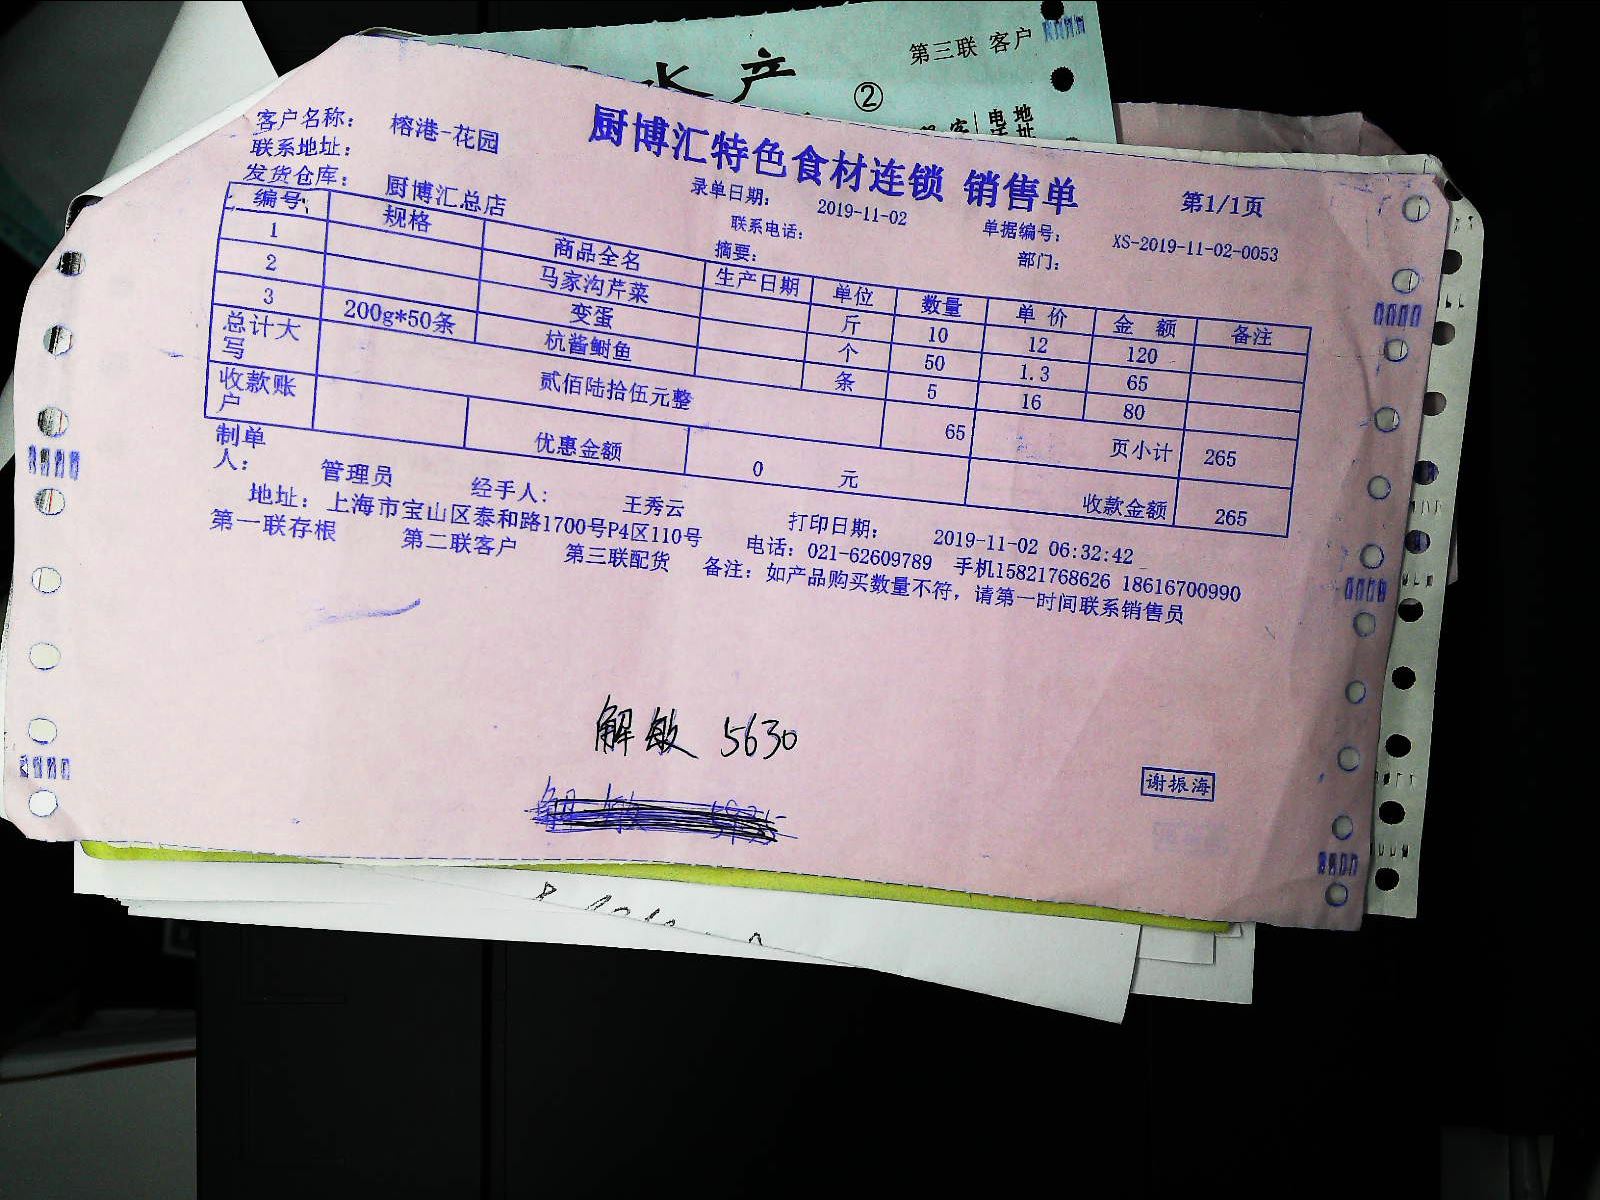 第三联 客户
水产
②
电 地
客 址
厨博汇特色食材连锁 销售单
第1/1页
客户名称： 榕港-花园
录单日期： 2019-11-02 单据编号： XS-2019-11-02-0053
联系地址： 联系电话： 部门：
发货仓库： 厨博汇总店 摘要：
编号 规格 商品全名 生产日期 单位 数量 单 价 金 额 备注
1 马家沟芹菜 斤 10 12 120
2 变蛋 个 50 1.3 65
3 200g*50条 杭酱鲥鱼 条 5 16 80
总计大写 贰佰陆拾伍元整 65 页小计 265
收款账户 优惠金额 0 元 收款金额 265
制单人： 管理员 经手人： 王秀云 打印日期： 2019-11-02 06:32:42
地址：上海市宝山区泰和路1700号P4区110号 电话：021-62609789 手机15821768626 18616700990
第一联存根 第二联客户 第三联配货 备注：如产品购买数量不符，请第一时间联系销售员
解敏 5630
谢振海